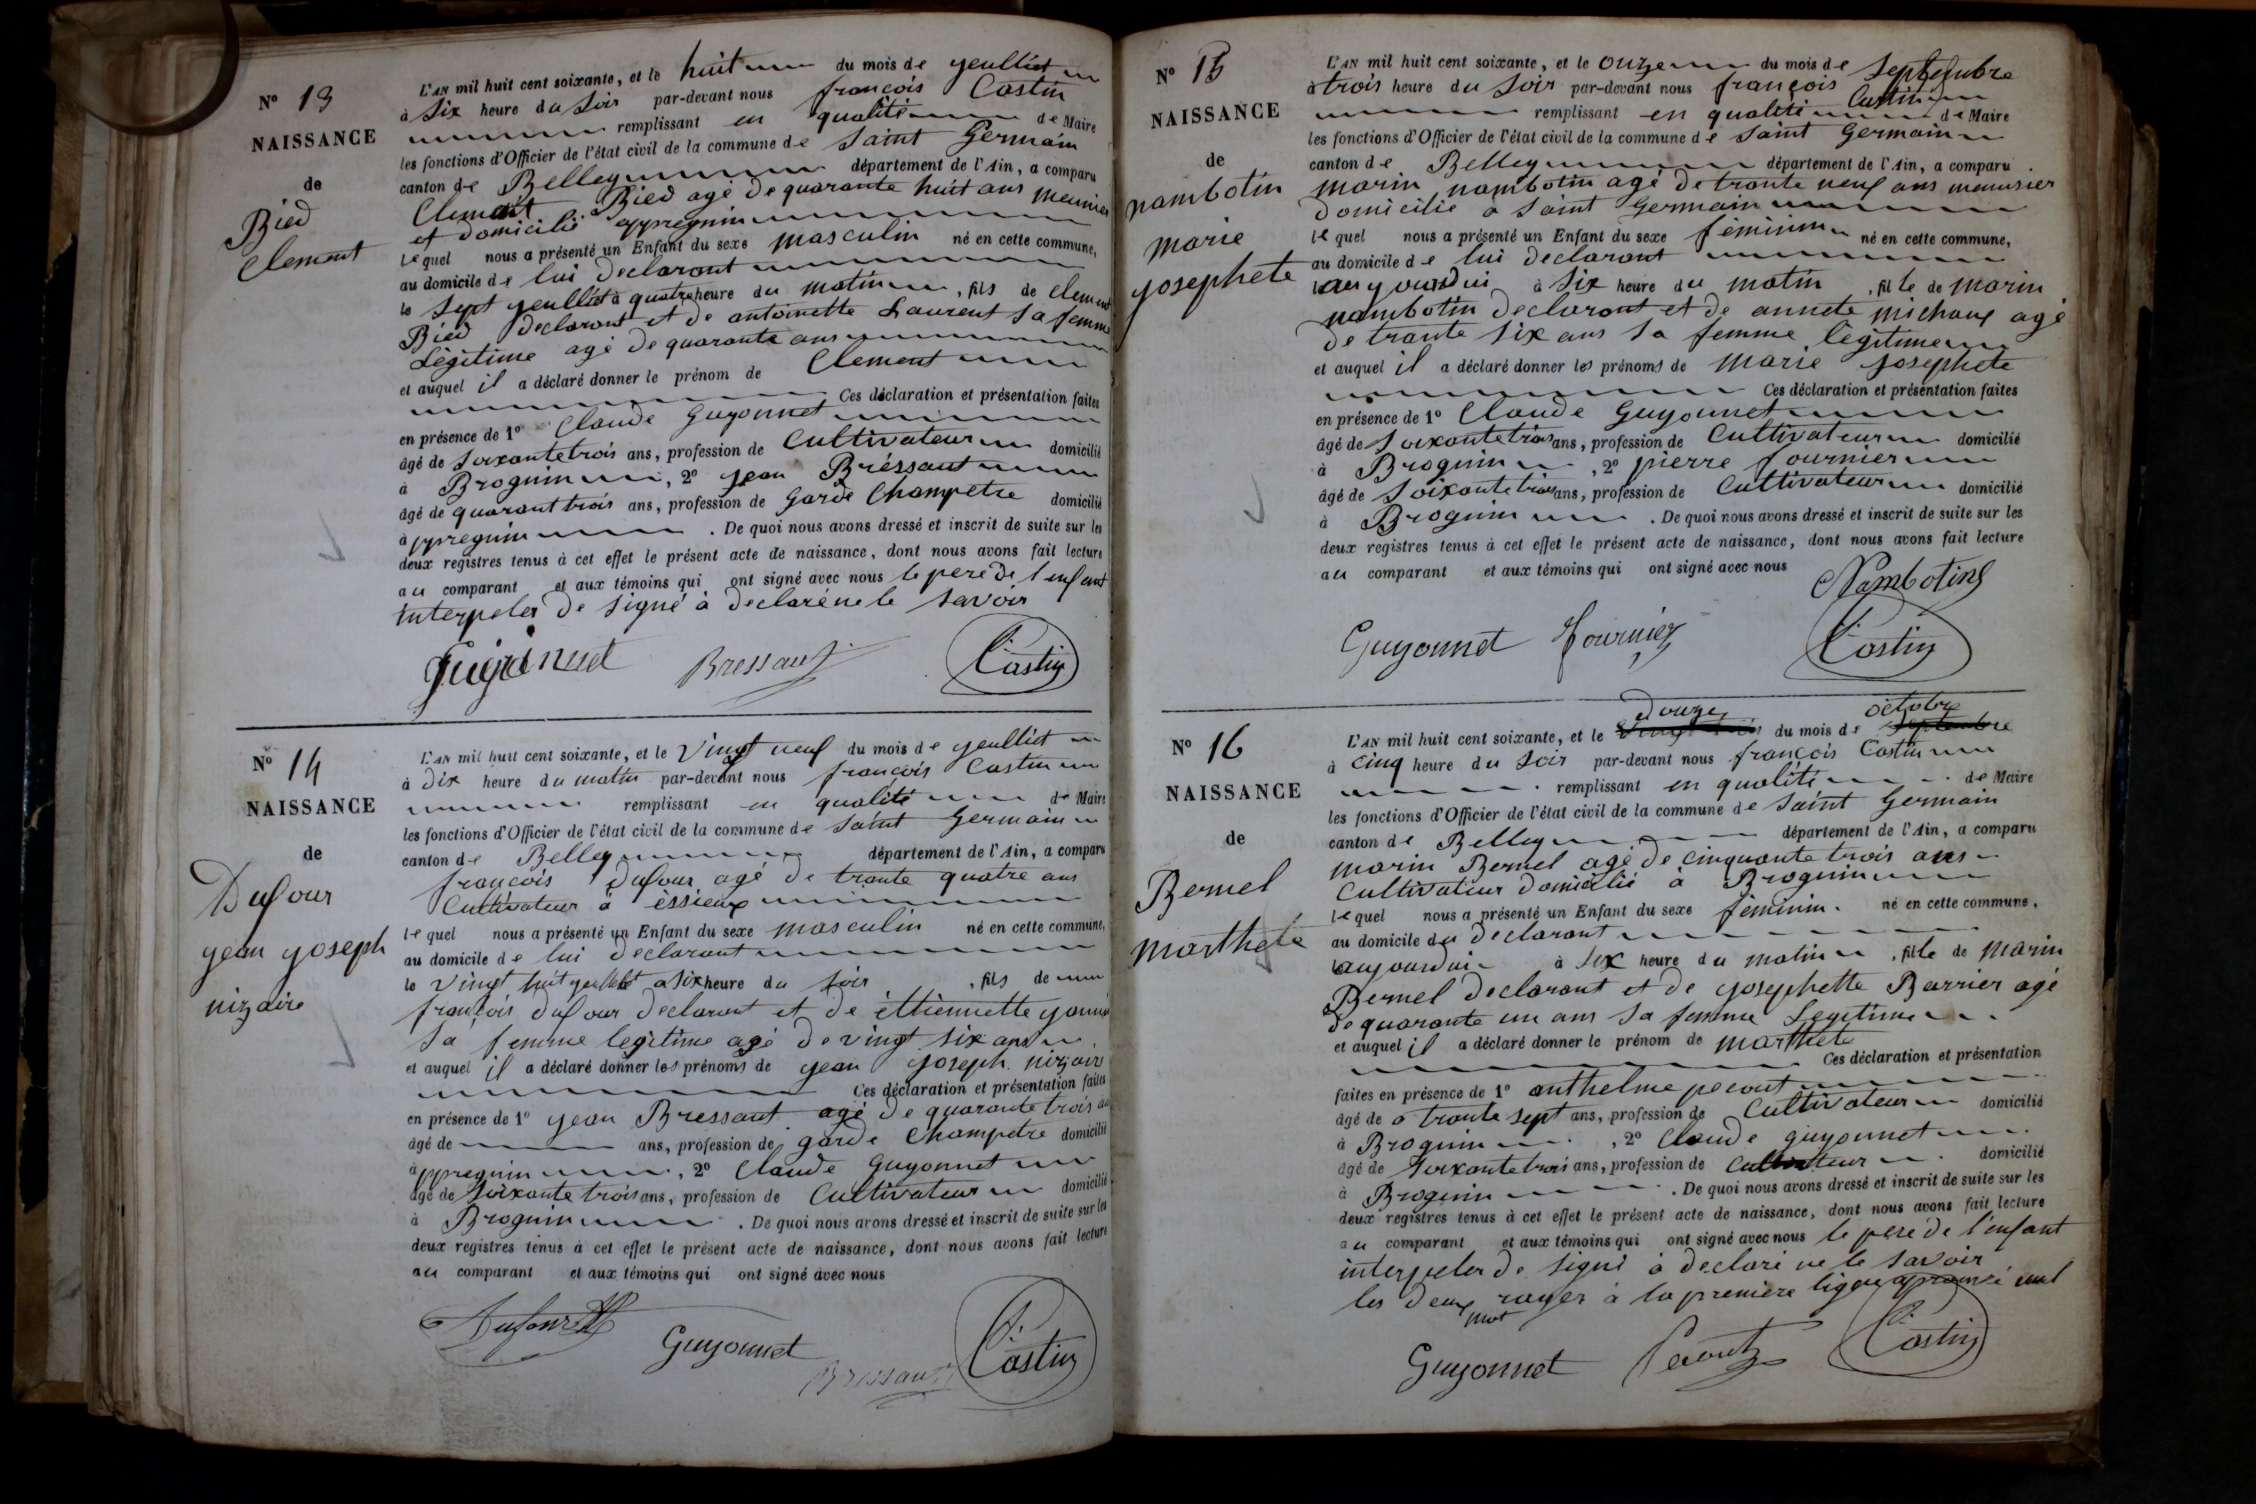 N° 13
NAISSANCE
de
Bied
Clement
L'AN mil huit cent soixante, et le huit du mois de yeulliet
à Six heure du Soir par-devant nous françois Castin
remplissant en qualité de Maire
les fonctions d'Officier de l'état civil de la commune de Saint Germain
canton de Belley département de l'Ain, a comparu
Clement Bied agé de quarante huit ans meunier
et domicilié appregnin
lequel nous a présenté un Enfant du sexe masculin né en cette commune,
au domicile de lui declarant
le Sept yeulliet à quatre heure du matin, fils de clement
Bied declarant et de antoinette Laurent sa femme
Légitime agé de quarante ans
et auquel il a déclaré donner le prénom de Clement
Ces déclaration et présentation faites
en présence de 1° Claude Guyonnet
âgé de Soixante trois ans, profession de Cultivateur domicilié
à Brognin, 2° jean Bréssaut
âgé de quarant trois ans, profession de Garde Champetre domicilié
à ppregnin. De quoi nous avons dressé et inscrit de suite sur les
deux registres tenus à cet effet le présent acte de naissance, dont nous avons fait lecture
au comparant et aux témoins qui ont signé avec nous le pere de l'enfant
interpeler de signé à declaré ne le savoir
Guyonnet Bressaut Castin
N° 14
NAISSANCE
de
Dufour
yean yoseph
nizaire
L'AN mil huit cent soixante, et le Vingt neuf du mois de yeulliet
à dix heure du matin par-devant nous françois Castin
remplissant en qualité de Maire
les fonctions d'Officier de l'état civil de la commune de Saint Germain
canton de Belley département de l'Ain, a comparu
françois Dufour agé de trante quatre ans
Cultivateur à éssieux
lequel nous a présenté un Enfant du sexe masculin né en cette commune,
au domicile de lui declarant
le Vingt huit yeulliet a six heure du soir, fils de
françois dufour declarant et de éttiennette
Sa femme legitime agé de vingt six ans
et auquel il a déclaré donner les prénoms de yean yoseph nizair
Ces déclaration et présentation faites
en présence de 1° yean Bressaut agé de quarante trois
âgé de ans, profession de garde Champetre domicilié
à ppregnin, 2° Claude Guyonnet
âgé de Soixante trois ans, profession de Cultivateur domicilié
à Brognin. De quoi nous avons dressé et inscrit de suite sur les
deux registres tenus à cet effet le présent acte de naissance, dont nous avons fait lecture
au comparant et aux témoins qui ont signé avec nous
Dufour Guyonnet Bressaut Castin
N° 15
NAISSANCE
de
nambotin
marie
yosephete
L'AN mil huit cent soixante, et le onze du mois de Septembre
à trois heure du Soir par-devant nous françois Castin
remplissant en qualité de Maire
les fonctions d'Officier de l'état civil de la commune de Saint Germain
canton de Belley département de l'Ain, a comparu
marin nambotin agé de trante neuf ans menusier
domicilié à Saint Germain
lequel nous a présenté un Enfant du sexe féminin né en cette commune,
au domicile de lui declarant
auyourdui à Six heure du matin, fille de marin
nambotin declarant et de annete michaux agé
de trante six ans sa femme légitime
et auquel il a déclaré donner les prénoms de marie yosephete
Ces déclaration et présentation faites
en présence de 1° Claude Guyonnet
âgé de Soixante trois ans, profession de Cultivateur domicilié
à Brognin, 2° pierre fournier
âgé de Soixante trois ans, profession de Cultivateur domicilié
à Brognin. De quoi nous avons dressé et inscrit de suite sur les
deux registres tenus à cet effet le présent acte de naissance, dont nous avons fait lecture
au comparant et aux témoins qui ont signé avec nous
Nambotin
Guyonnet Fournier Castin
N° 16
NAISSANCE
de
Bernel
marthete
douze octobre
L'AN mil huit cent soixante, et le du mois de septembre
à cinq heure du Soir par-devant nous françois Castin
remplissant en qualité de Maire
les fonctions d'Officier de l'état civil de la commune de Saint Germain
canton de Belley département de l'Ain, a comparu
marin Bernel agé de cinquante trois ans
Cultivateur domicilié à Brognin
lequel nous a présenté un Enfant du sexe féminin. né en cette commune,
au domicile du declarant
auyourdui à six heure du matin, fille de marin
Bernel declarant et de yosephette Barrier agé
de quarante un ans sa femme Legitime
et auquel il a déclaré donner le prénom de marthete
Ces déclaration et présentation
faites en présence de 1° anthelme pecout
âgé de trante sept ans, profession de Cultivateur domicilié
à Brognin, 2° Claude guyonnet
âgé de Soixante trois ans, profession de Cultivateur domicilié
à Brognin. De quoi nous avons dressé et inscrit de suite sur les
deux registres tenus à cet effet le présent acte de naissance, dont nous avons fait lecture
au comparant et aux témoins qui ont signé avec nous le pere de l'enfant
interpeler de signé à declaré ne le savoir
les deux mot rayer à la premiere ligne nul
Guyonnet Pecout Castin